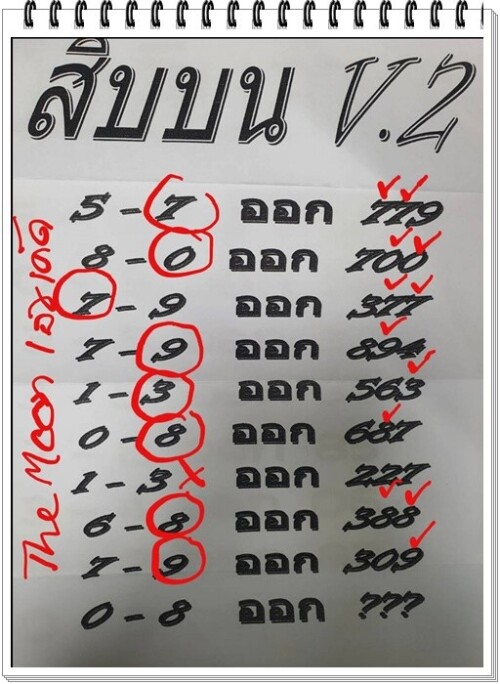 สิบบน V.2
5 - 7 ออก 779
8 - 0 ออก 700
7 - 9 ออก 377
7 - 9 ออก 894
1 - 3 ออก 563
0 - 8 ออก 687
1 - 3 ออก 227
6 - 8 ออก 388
7 - 9 ออก 309
0 - 8 ออก ???
The Moon